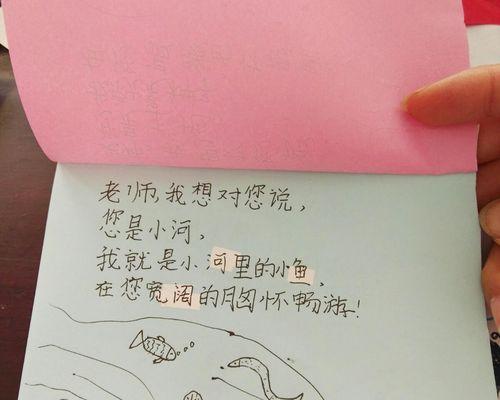 老师,我想对您说,
您是小河,
我就是小河里的小鱼,
在您宽阔的胸怀畅游!